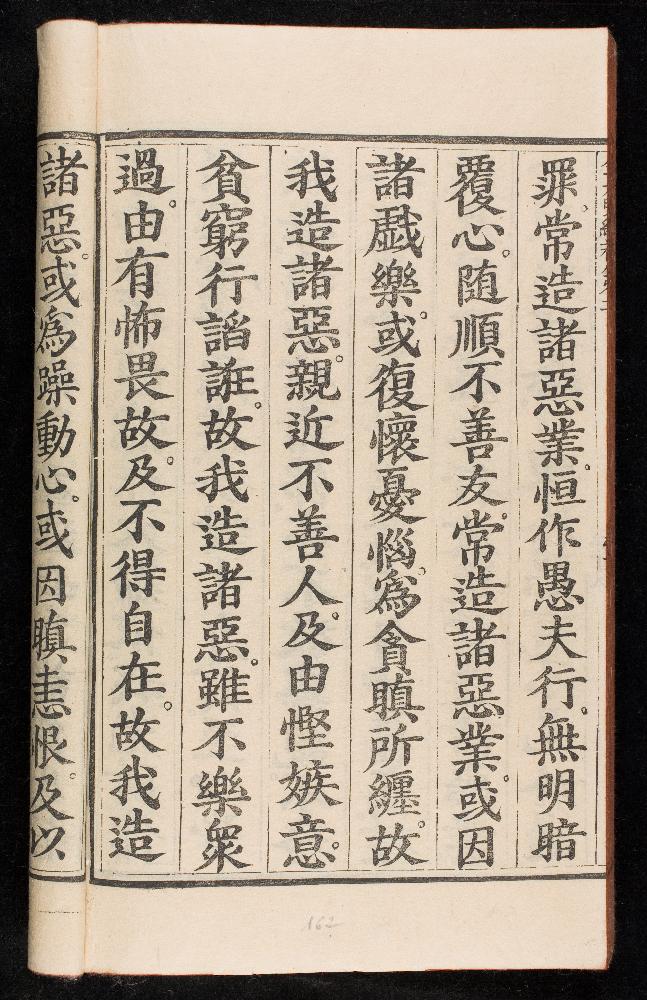 罪。常造諸惡業。恒作愚夫行。無明暗
覆心。随順不善友。常造諸惡業。或因
諸戲樂。或復懷憂惱。為貪瞋所纏。故
我造諸惡。親近不善人。及由慳嫉意。
貧窮行諂誑。故我造諸惡。雖不樂衆
過。由有怖畏故。及不得自在。故我造
諸惡。或為躁動心。或因瞋恚恨。及以
162